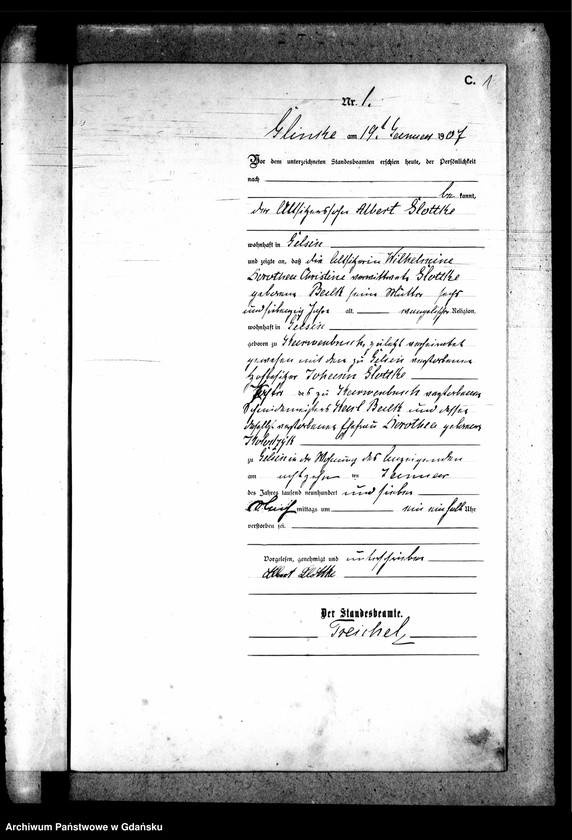 C. 1
Nr. 1.
Glinke am 19t Januar 1907
Vor dem unterzeichneten Standesbeamten erschien heute, der Persönlichkeit
nach
be kannt,
der Altsitzersohn Albert Glottke
wohnhaft in Gelsin
und zeigte an, daß die Altsitzerin Wilhelmine
Dorothea Christine verwittwete Glottke
geborene Beilk seine Mutter sechs
und siebenzig Jahre alt, evangelischer Religion,
wohnhaft in Gelsin
geboren zu zuletzt verheirathet
gewesen mit dem zu Gelsin verstorbenen
Hofbesitzer Johann Glottke
Tochter des zu verstorbenen
Schneidemeisters Karl Beilk und dessen
daselbst verstorbenen Ehefrau Dorothea geborenen
zu Gelsin in der Wohnung des Anzeigenden
am achtzehn ten Januar
des Jahres tausend neunhundert und sieben
mittags um ein halb Uhr
verstorben sei.
Vorgelesen, genehmigt und unterschrieben
Albert Glottke
Der Standesbeamte.
Treichel
Archiwum Państwowe w Gdańsku